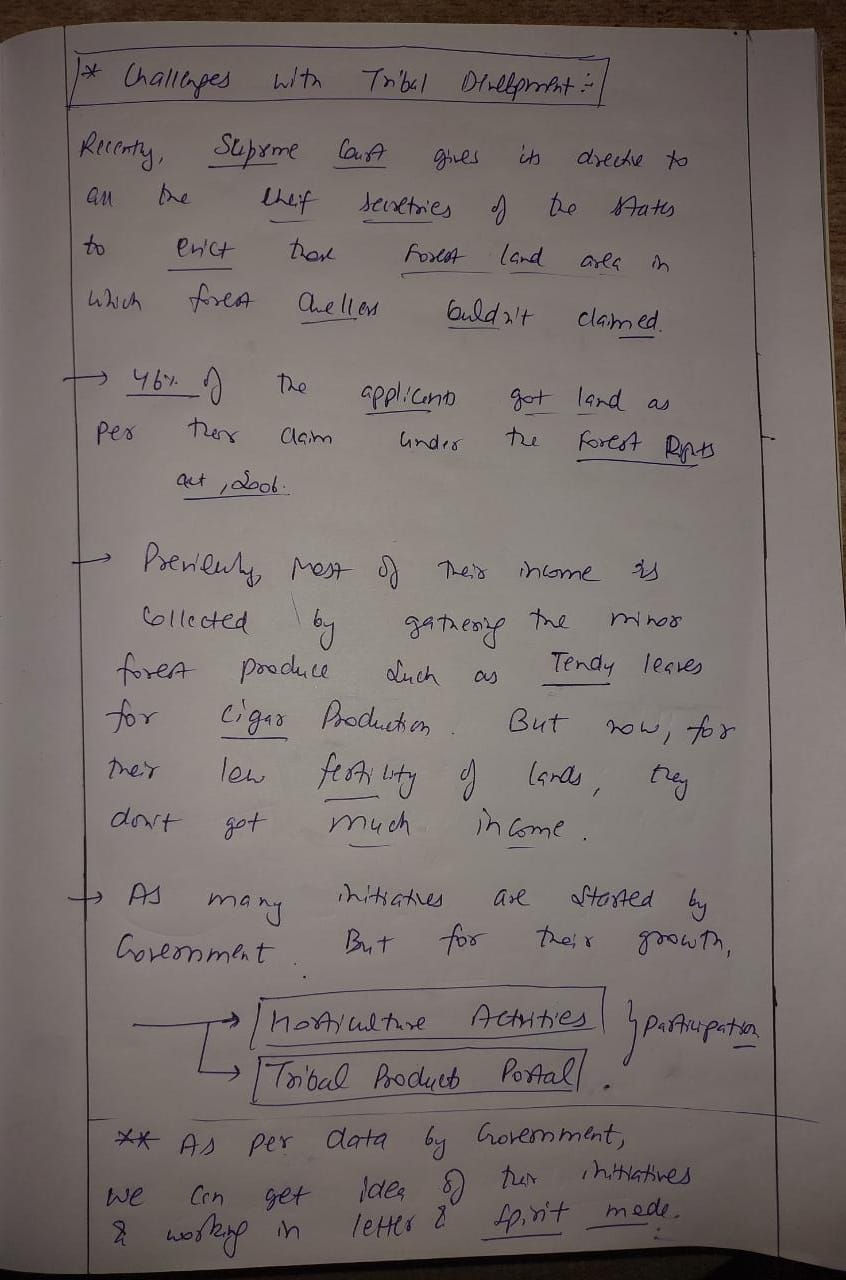 * Challenges with Tribal Development :-
Recently, Supreme Court gives its directive to
all the cheif secretries of the states
to evict those Forest land area in
which forest dwellers couldn't claimed.
→ 46% of the applicants got land as
per their claim under the Forest Rights
act, 2006.
→ Previously, most of their income is
collected by gathering the minor
forest produce such as Tendy leaves
for cigar Production. But now, for
their low fertility of lands, they
don't got much income.
→ As many initiatives are started by
Government. But for their growth,
→ Horticulture Activities } participation
→ Tribal Products Portal.
** As per data by Government,
we can get idea of their initiatives
& working in letter & spirit mode.